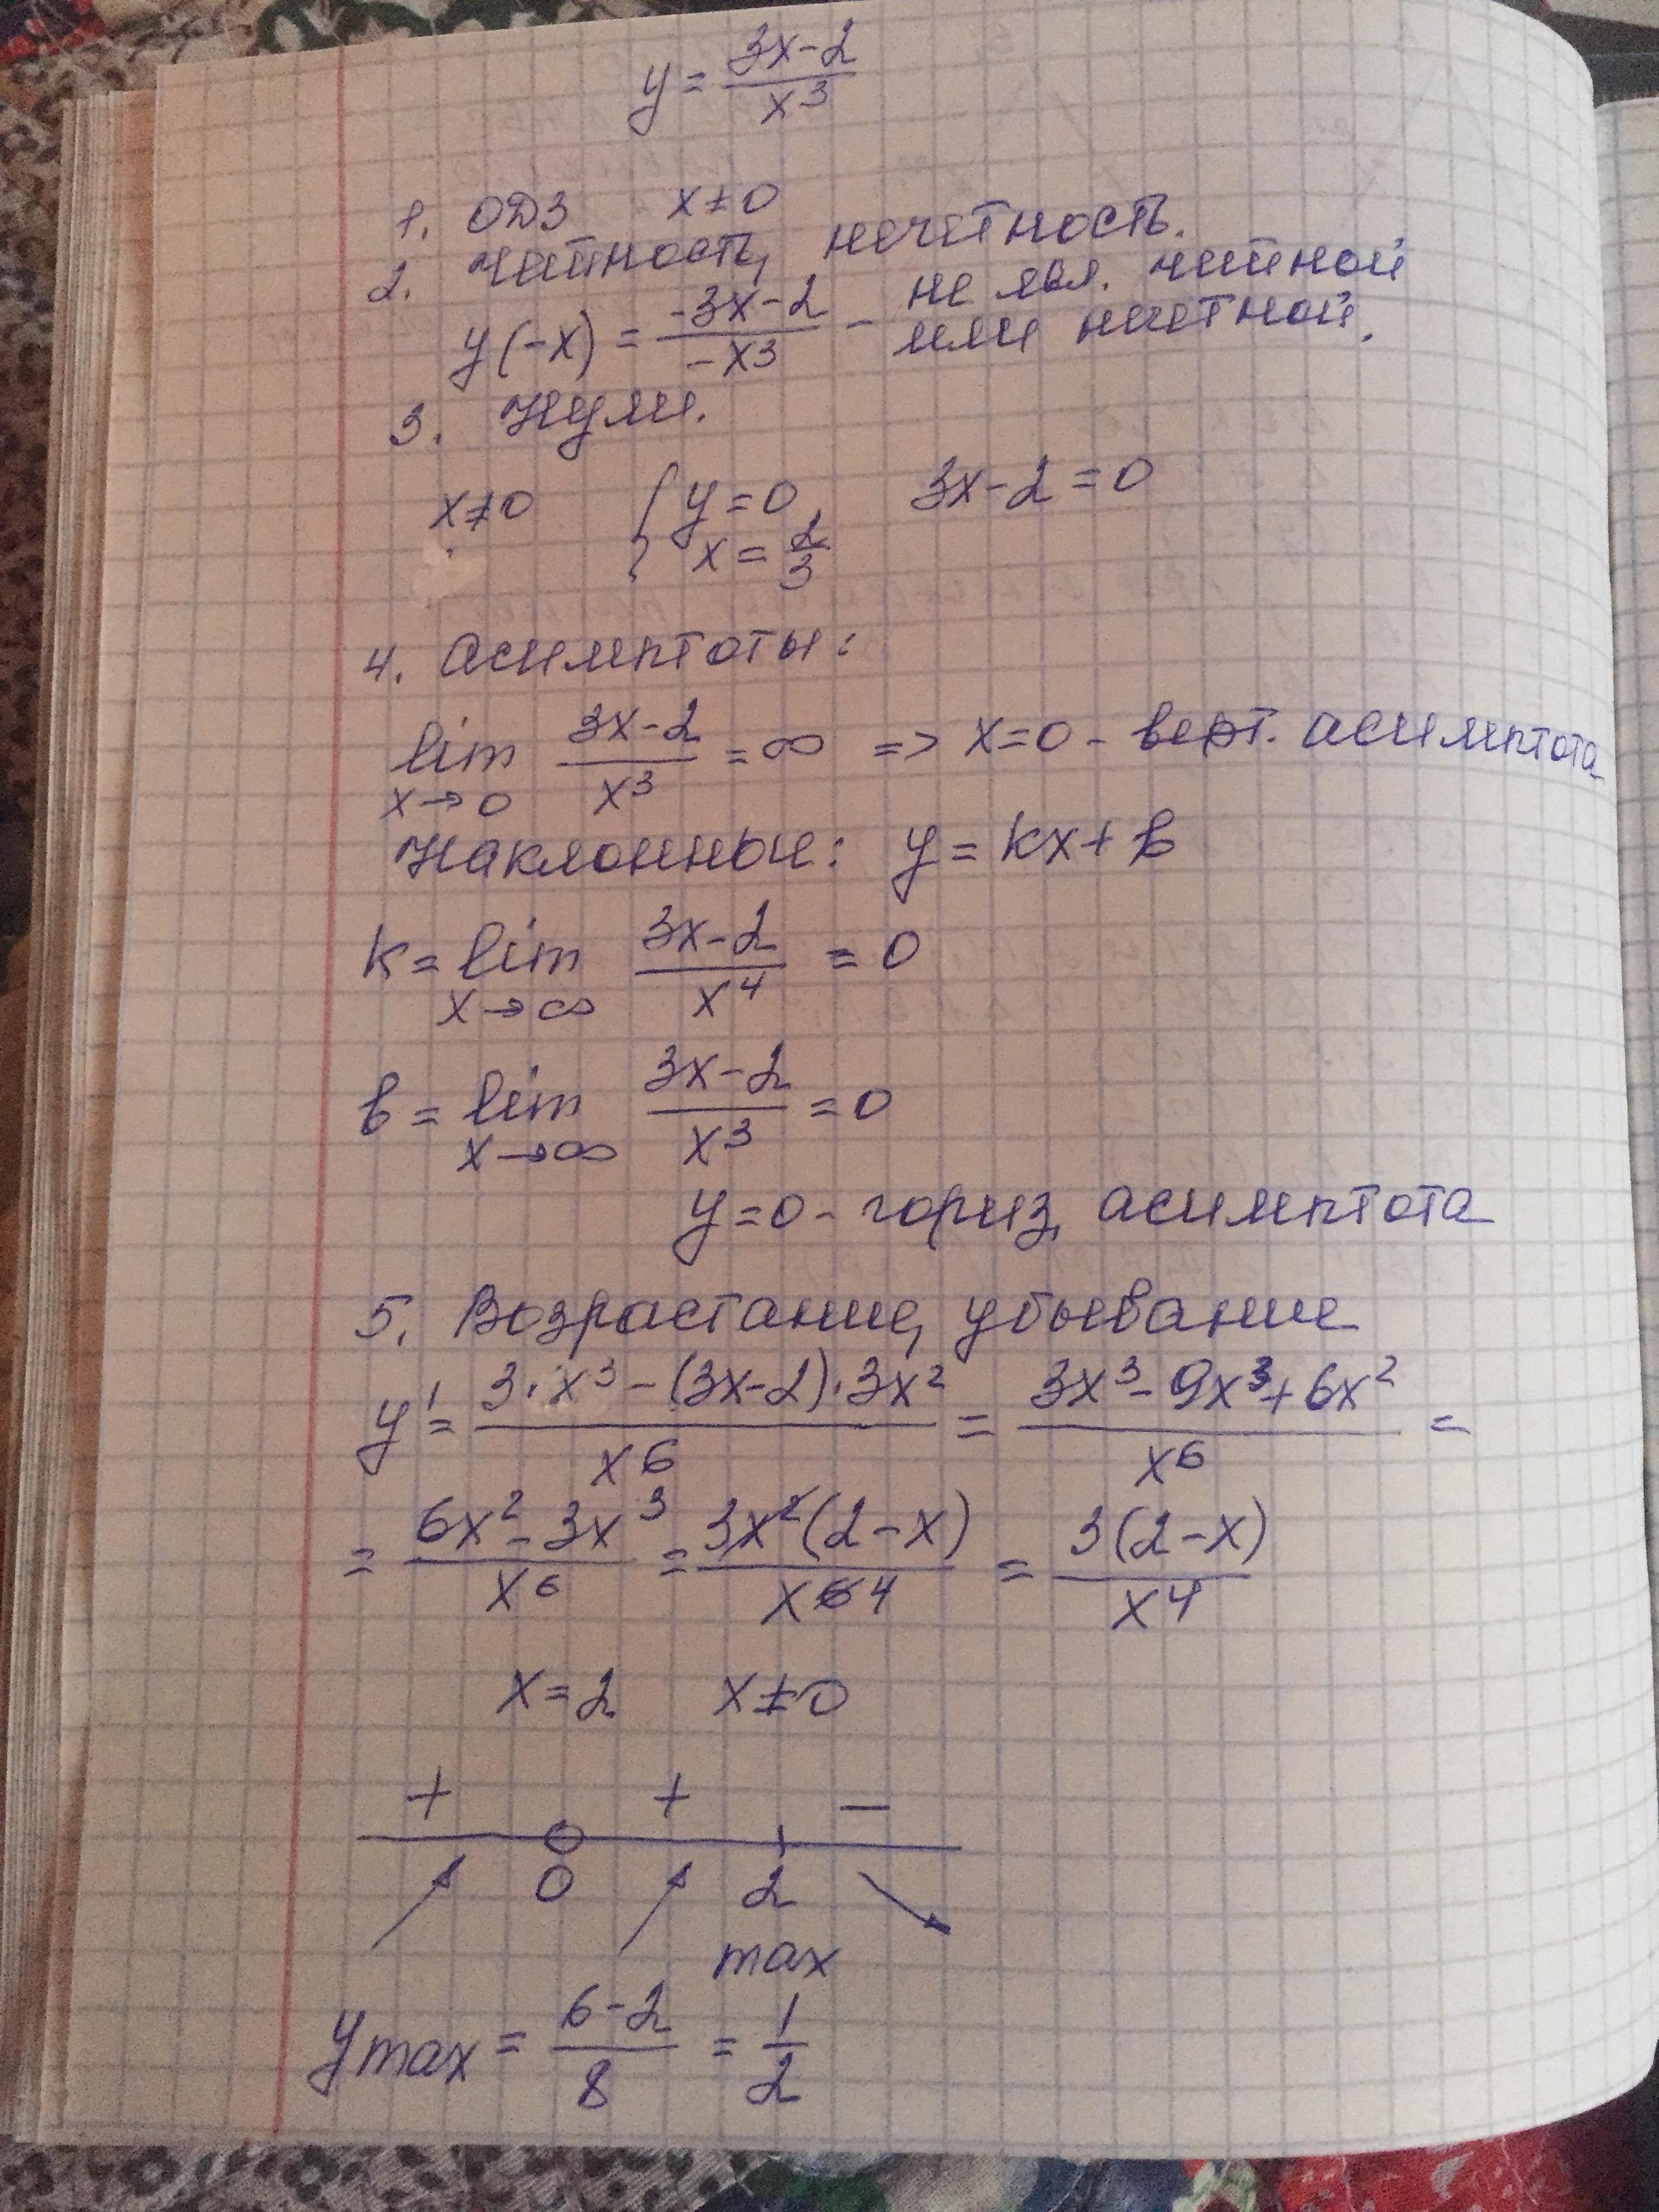 y = (3x-2)/x³
1. ОДЗ x≠0
2. Четность, нечетность.
y(-x) = (-3x-2)/(-x³) - не явл. четной
или нечетной.
3. Нули.
x≠0 { y=0, x=2/3 3x-2=0
4. Асимптоты:
lim x→0 (3x-2)/x³ = ∞ => x=0 - верт. асимптота
Наклонные: y = kx + b
k = lim x→∞ (3x-2)/x⁴ = 0
b = lim x→∞ (3x-2)/x³ = 0
y=0 - гориз. асимптота
5. Возрастание, убывание
y' = (3·x³-(3x-2)·3x²)/x⁶ = (3x³-9x³+6x²)/x⁶ =
= (6x²-3x³)/x⁶ = 3x²(2-x)/x⁶ 4 = 3(2-x)/x⁴
x=2 x≠0
+ + −
0 2
max
y max = (6-2)/8 = 1/2